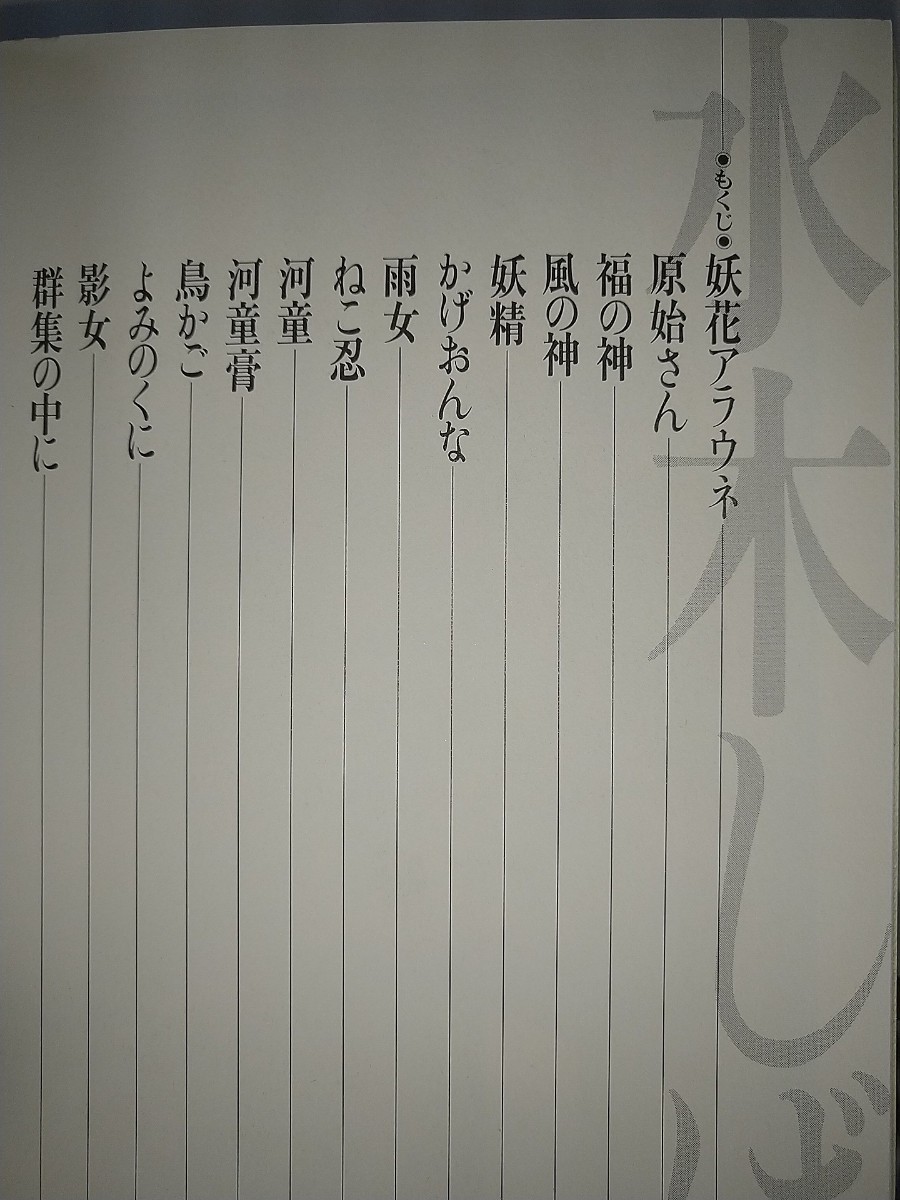 水木しげ
◉もくじ◉
妖花アラウネ
原始さん
福の神
風の神
妖精
かげおんな
雨女
ねこ忍
河童
河童膏
鳥かご
よみのくに
影女
群集の中に